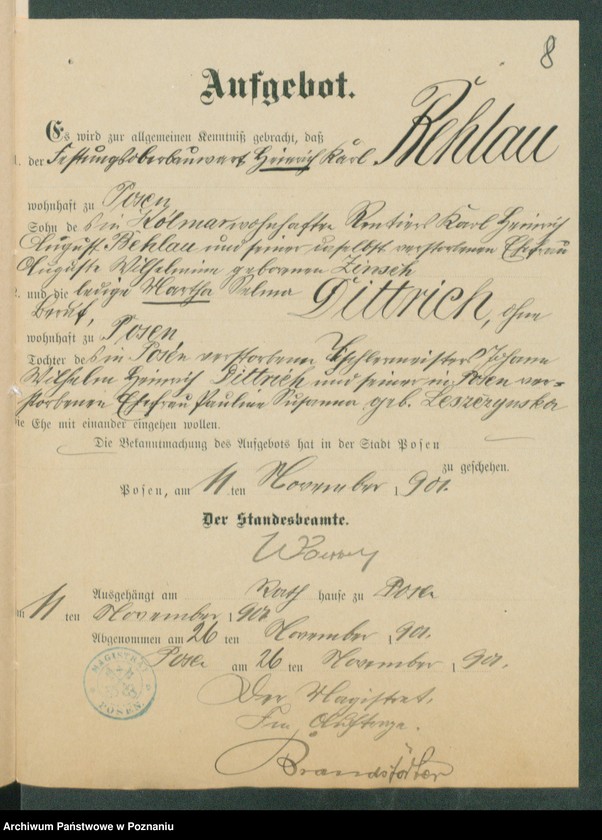 8
Aufgebot.
Es wird zur allgemeinen Kenntniß gebracht, daß
1. der Festungsoberbauwart Heinrich Karl Behlau
wohnhaft zu Posen
Sohn des in Kolmar wohnhaften Rentiers Karl Heinrich
August Behlau und seiner daselbst verstorbenen Ehefrau
Auguste Wilhelmine geborenen Zinsch
2. und die ledige Martha Selma Dittrich, ohne
Beruf,
wohnhaft zu Posen,
Tochter des in Posen verstorbenen Tischlermeisters Johann
Wilhelm Heinrich Dittrich und seiner in Posen ver=
storbenen Ehefrau Pauline Susanna geb. Leszczynska
die Ehe mit einander eingehen wollen.
Die Bekanntmachung des Aufgebots hat in der Stadt Posen
zu geschehen.
Posen, am 11 ten November 1901.
Der Standesbeamte.
Ausgehängt am Rath hause zu Posen
am 11 ten November 1901
Abgenommen am 26 ten November 1901.
Posen am 26 ten November 1901.
Der Magistrat.
Im Auftrage.
Brandstädter
MAGISTRAT
POSEN
Archiwum Państwowe w Poznaniu